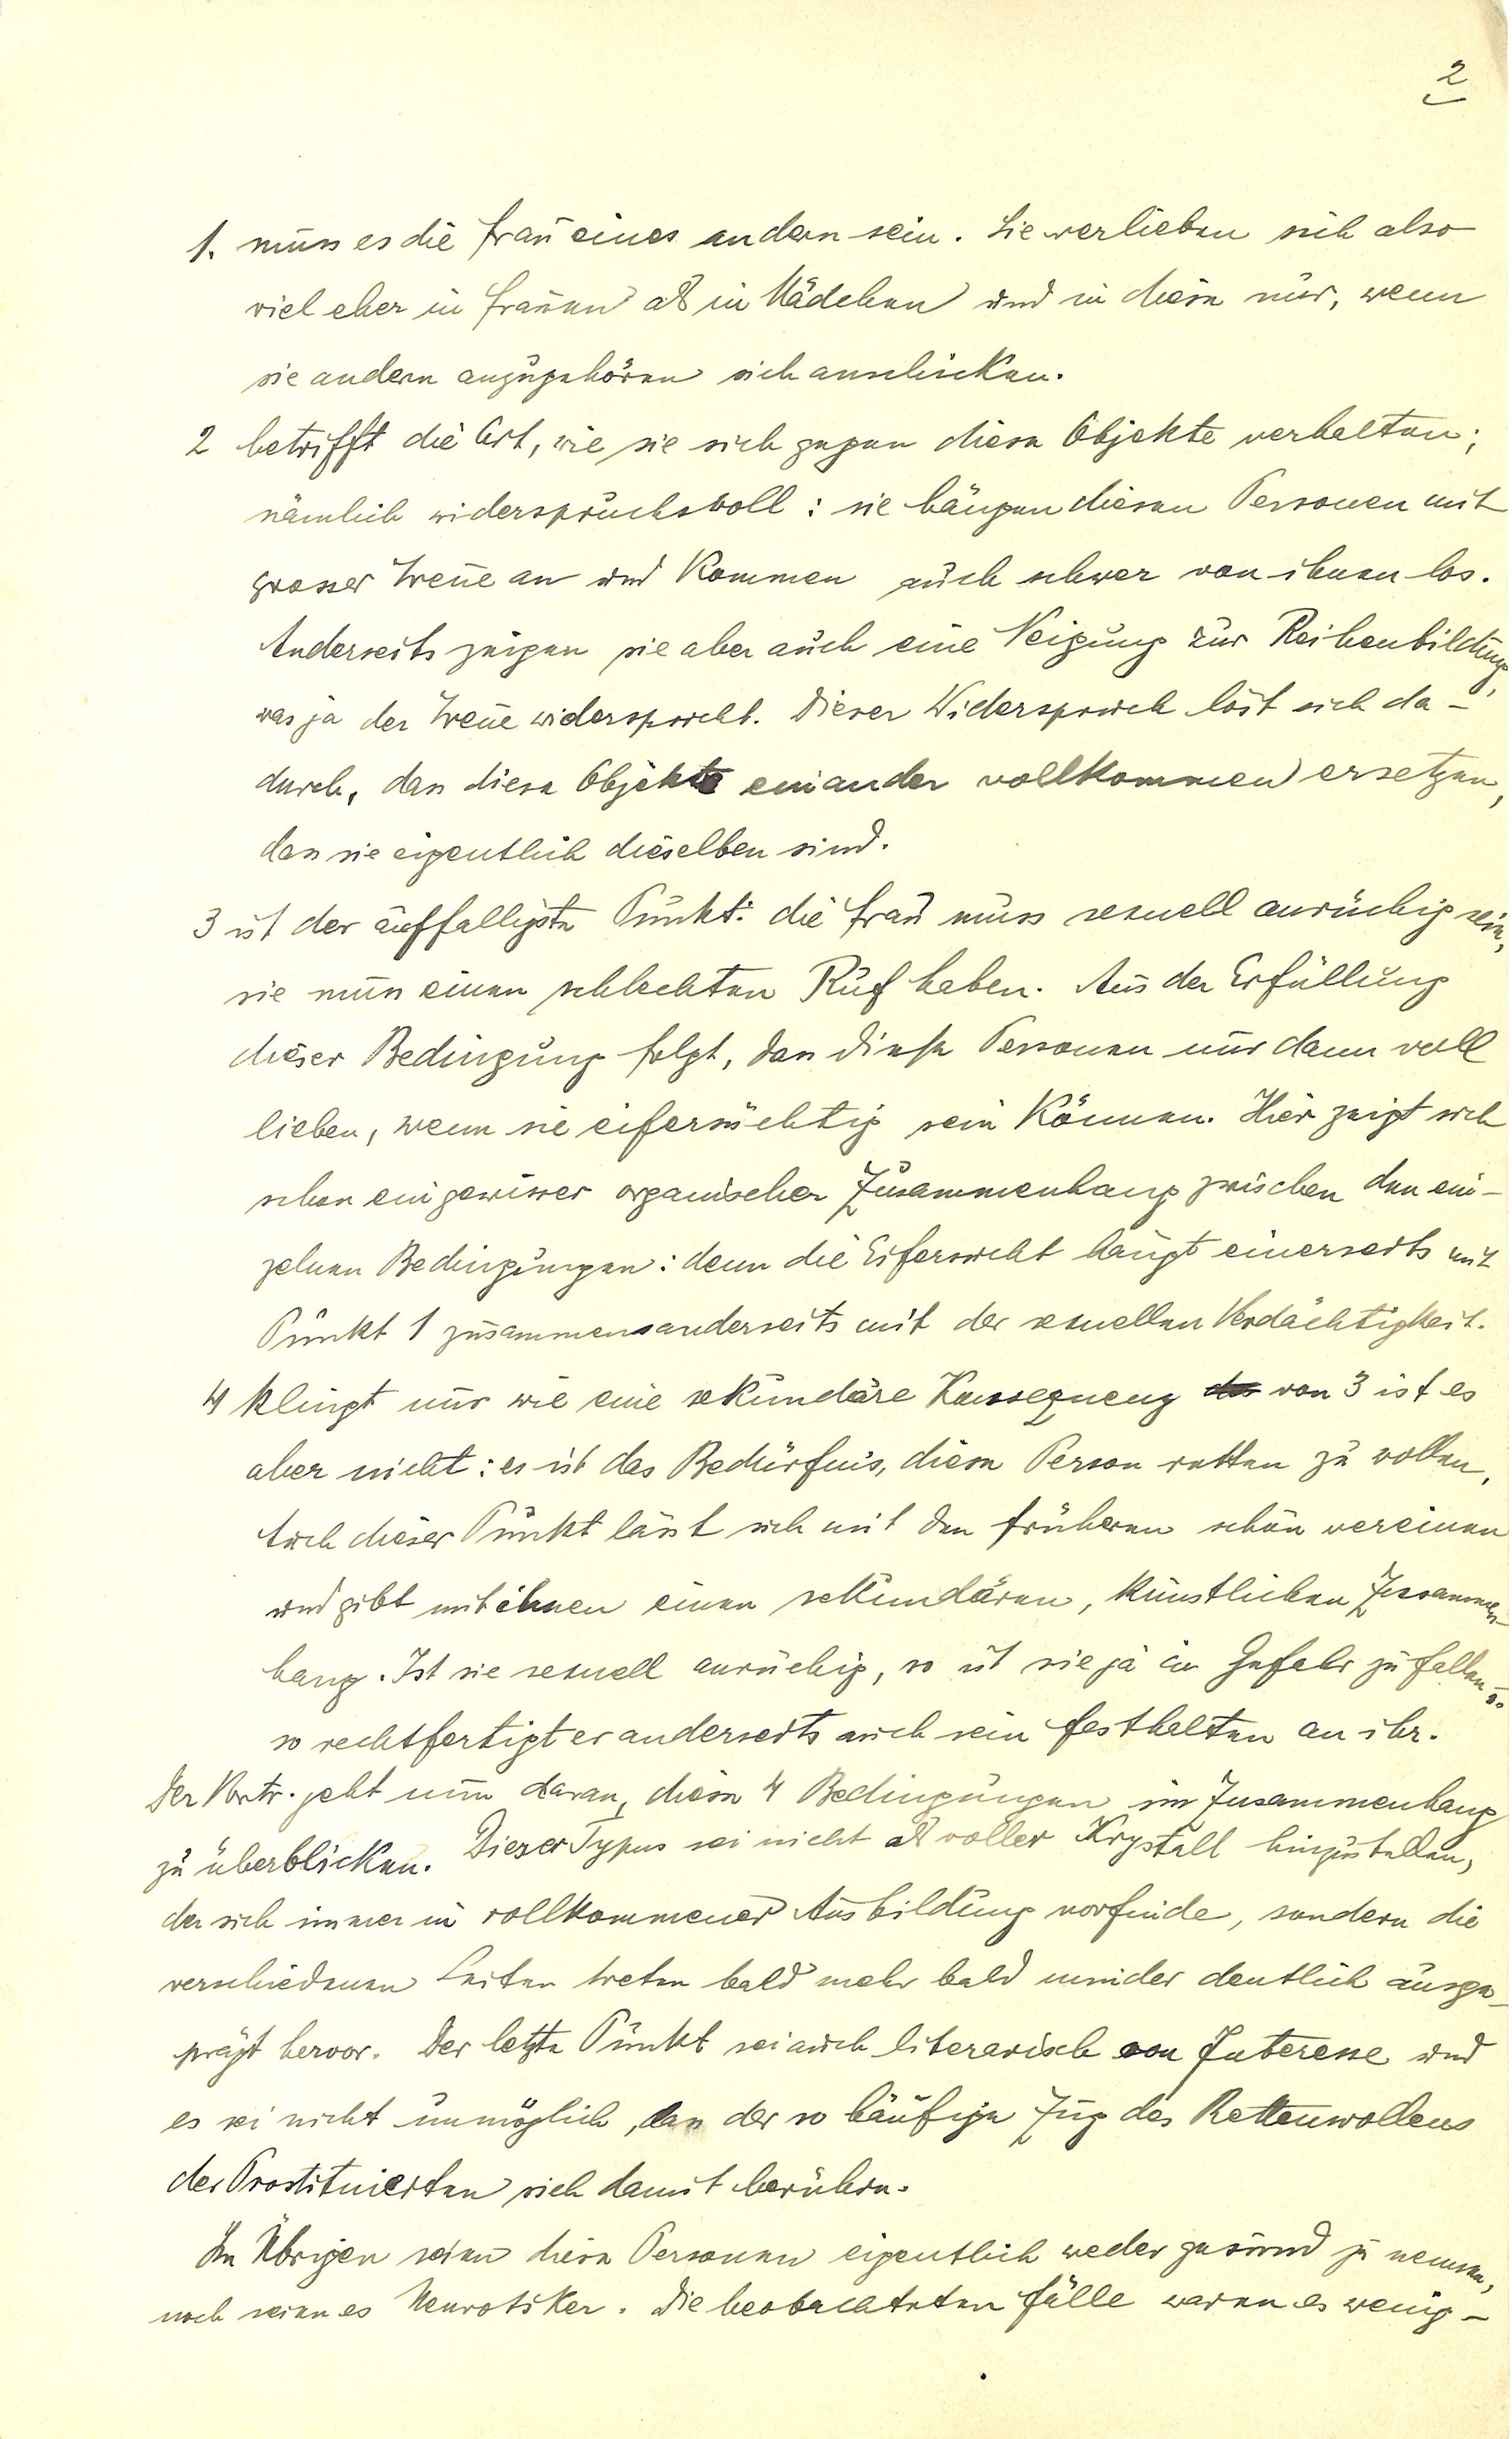 2
1. muss es die Frau eines andern sein. Sie verlieben sich also
viel eher in Frauen als in Mädchen und in diese nur, wenn
sie andern anzugehören sich anschicken.
2 betrifft die Art, wie sie sich gegen diese Objekte verhalten;
nämlich widerspruchsvoll: sie hängen diesen Personen mit
grosser Treue an und kommen auch schwer von ihnen los.
Anderseits zeigen sie aber auch eine Neigung zur Reihenbildung,
was ja der Treue widerspricht. Dieser Widerspruch löst sich da-
durch, dass diese Objekte einander vollkommen ersetzen,
dass sie eigentlich dieselben sind.
3 ist der auffalligste Punkt: die Frau muss sexuell anrüchig sein,
sie muss einen schlechten Ruf haben. Aus der Erfüllung
dieser Bedingung folgt, dass diese Personen nur dann voll
lieben, wenn sie eifersüchtig sein können. Hier zeigt sich
schon ein gewisser organischer Zusammenhang zwischen den ein-
zelnen Bedingungen: denn die Eifersucht hängt einerseits mit
Punkt 1 zusammen anderseits mit der sexuellen Verdächtigkeit.
4 klingt nur wie eine sekundäre Konsequenz von 3 ist es
aber nicht: es ist das Bedürfnis, diese Person retten zu wollen,
Auch dieser Punkt lässt sich mit den früheren schön vereinen
und gibt mit ihnen einen sekundären, künstlichen Zusammen-
hang. Ist sie sexuell anrüchig, so ist sie ja in Gefahr zu fallen
so rechtfertigt er anderseits auch sein Festhalten an ihr.
Der Vortr. geht nun daran, diese 4 Bedingungen im Zusammenhang
zu überblicken. Dieser Typus sei nicht als voller Krystall hinzustellen,
der sich immer in vollkommener Ausbildung vorfinde, sondern die
verschiedenen Seiten treten bald mehr bald minder deutlich ausge-
prägt hervor. Der letzte Punkt sei auch literarisch von Interesse und
es sei nicht unmöglich, dass der so häufige Zug des Rettenwollens
der Prostituierten sich damit berühre.
Im Übrigen seien diese Personen eigentlich weder gesund zu nennen,
noch seien es Neurotiker. Die beobachteten Fälle waren es wenig-